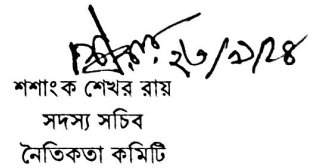 ২৩/৯/২৪
শশাংক শেখর রায়
সদস্য সচিব
নৈতিকতা কমিটি